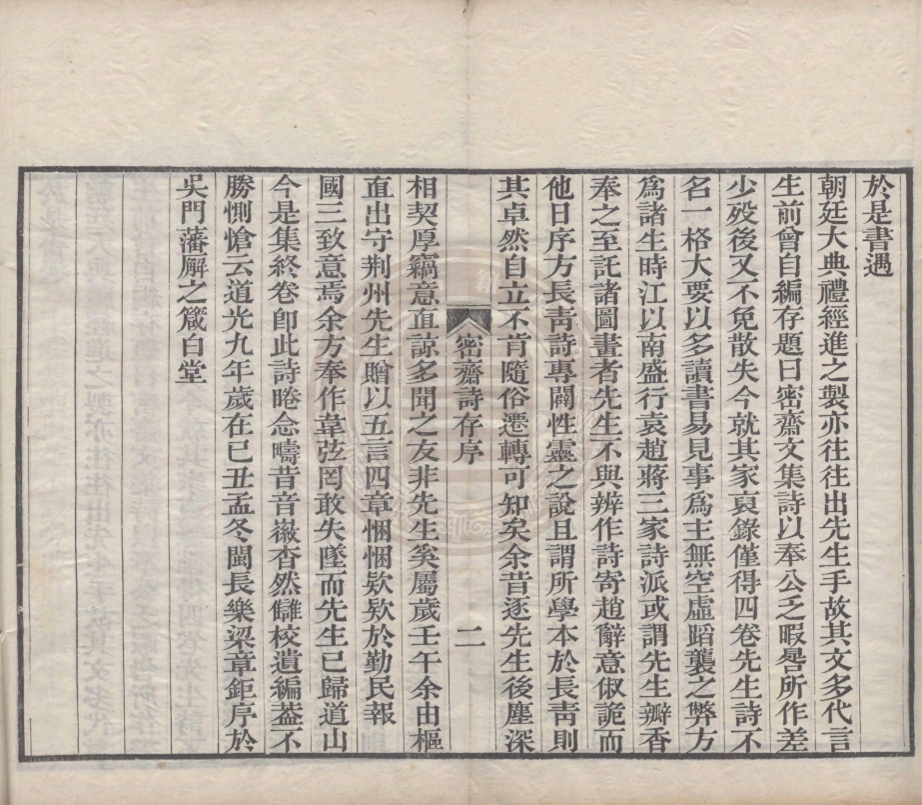 於是書遇
朝廷大典禮經進之製亦往往出先生手故其文多代言
生前曾自編存題曰密齋文集詩以奉公乏暇晷所作差
少歿後又不免散失今就其家裒錄僅得四卷先生詩不
名一格大要以多讀書易見事爲主無空虛蹈襲之弊方
爲諸生時江以南盛行袁趙蔣三家詩派或謂先生瓣香
奉之至託諸圖畫者先生不與辨作詩寄趙辭意俶詭而
他日序方長青詩專闢性靈之說且謂所學本於長青則
其卓然自立不肯隨俗遷轉可知矣余昔逐先生後塵深
密齋詩存序 二
相契厚竊意直諒多聞之友非先生奚屬歲壬午余由樞
直出守荆州先生贈以五言四章悃悃欵欵於勤民報
國三致意焉余方奉作韋弦罔敢失墜而先生已歸道山
今是集終卷卽此詩睠念疇昔音徽杳然讎校遺編葢不
勝惻愴云道光九年歲在己丑孟冬閩長樂梁章鉅序於
吳門藩廨之箴白堂